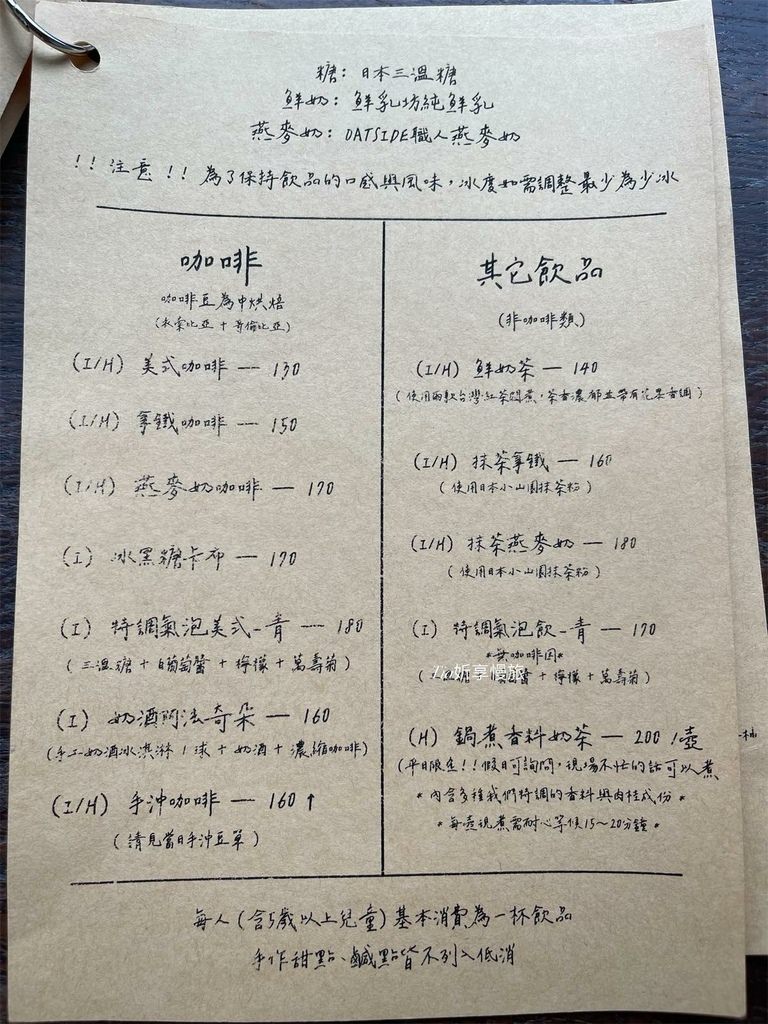 糖：日本三溫糖
鮮奶：鮮乳坊純鮮乳
燕麥奶：OATSIDE職人燕麥奶
!! 注意 !! 為了保持飲品的口感與風味，冰度如需調整最少為少冰
咖啡
咖啡豆為中烘焙
(衣索比亞 + 哥倫比亞)
(I/H) 美式咖啡 — 130
(I/H) 拿鐵咖啡 — 150
(I/H) 燕麥奶咖啡 — 170
(I) 冰黑糖卡布 — 170
(I) 特調氣泡美式-青 — 180
(三溫糖 + 白葡萄醬 + 檸檬 + 萬壽菊)
(I) 奶酒阿法奇朵 — 160
(手工奶酒冰淇淋1球 + 奶酒 + 濃縮咖啡)
(I/H) 手沖咖啡 — 160↑
(請見當日手沖豆單)
其它飲品
(非咖啡類)
(I/H) 鮮奶茶 — 140
(使用兩款台灣紅茶悶煮，茶香濃郁並帶有花果香調)
(I/H) 抹茶拿鐵 — 160
(使用日本小山園抹茶粉)
(I/H) 抹茶燕麥奶 — 180
(使用日本小山園抹茶粉)
(I) 特調氣泡飲-青 — 170
*無咖啡因*
糖 萄醬 + 檸檬 + 萬壽菊)
妡享慢旅
(H) 鍋煮香料奶茶 — 200 /壺
(平日限定!! 假日可詢問，現場不忙的話可以煮
*內含多種我們特調的香料與肉桂成份*
*每壺現煮需耐心等候15~20分鐘*
每人(含5歲以上兒童)基本消費為一杯飲品
手作甜點、鹹點皆不列入低消